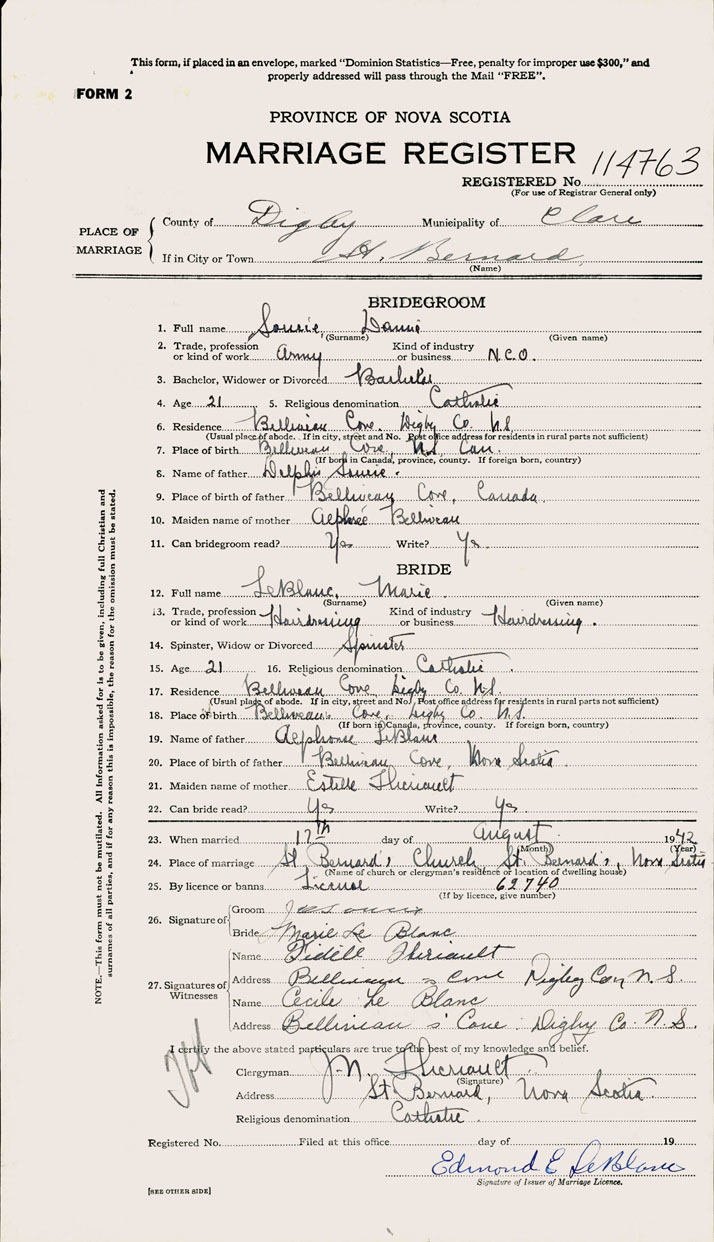 This form, if placed in an envelope, marked "Dominion Statistics—Free, penalty for improper use $300," and
properly addressed will pass through the Mail "FREE".
FORM 2
PROVINCE OF NOVA SCOTIA
MARRIAGE REGISTER 114763
REGISTERED No.
(For use of Registrar General only)
PLACE OF MARRIAGE
County of Digby Municipality of Clare
If in City or Town St. Bernard,
(Name)
BRIDEGROOM
1. Full name
(Surname) (Given name)
2. Trade, profession or kind of work Army Kind of industry or business N.C.O.
3. Bachelor, Widower or Divorced Bachelor
4. Age 21 5. Religious denomination Catholic
6. Residence Belliveau Cove, Digby Co. N.S.
(Usual place of abode. If in city, street and No. Post office address for residents in rural parts not sufficient)
7. Place of birth Belliveau Cove, N.S. Can.
(If born in Canada, province, county. If foreign born, country)
8. Name of father Delphis
9. Place of birth of father Belliveau Cove, Canada.
10. Maiden name of mother Belliveau
11. Can bridegroom read? Yes Write? Yes.
BRIDE
12. Full name LeBlanc, Marie
(Surname) (Given name)
13. Trade, profession or kind of work Hairdressing Kind of industry or business Hairdressing.
14. Spinster, Widow or Divorced Spinster
15. Age 21 16. Religious denomination Catholic.
17. Residence Belliveau Cove Digby Co. N.S.
(Usual place of abode. If in city, street and No. Post office address for residents in rural parts not sufficient)
18. Place of birth Belliveau's Cove, Digby Co. N.S.
(If born in Canada, province, county. If foreign born, country)
19. Name of father Alphonse LeBlanc
20. Place of father Belliveau Cove, Nova Scotia.
21. Maiden name of mother Estelle Theriault
22. Can bride read? Yes Write? Yes.
23. When married 17th day of August 1942
(Month) (Year)
24. Place of marriage St Bernard's Church, St. Bernard's, Nova Scotia
(Name of church or clergyman's residence or location of dwelling house)
25. By licence or banns License 62740
(If by licence, give number)
26. Signature of
Groom
Bride Marie Le Blanc
27. Signatures of Witnesses
Name Fidell Theriault
Address Belliveau s Cove Digby Co N.S.
Name Cecile Le Blanc
Address Belliveau s' Cove. Digby Co. N.S.
I certify the above stated particulars are true to the best of my knowledge and belief.
Clergyman J. N. Theriault
(Signature)
Address St. Bernard, Nova Scotia.
Religious denomination Catholic.
Registered No. Filed at this office day of 19
Edmond E LeBlanc
Signature of Issuer of Marriage Licence.
[SEE OTHER SIDE]
NOTE.—This form must not be mutilated. All Information asked for is to be given, including full Christian and
surnames of all parties, and if for any reason this is impossible, the reason for the omission must be stated.